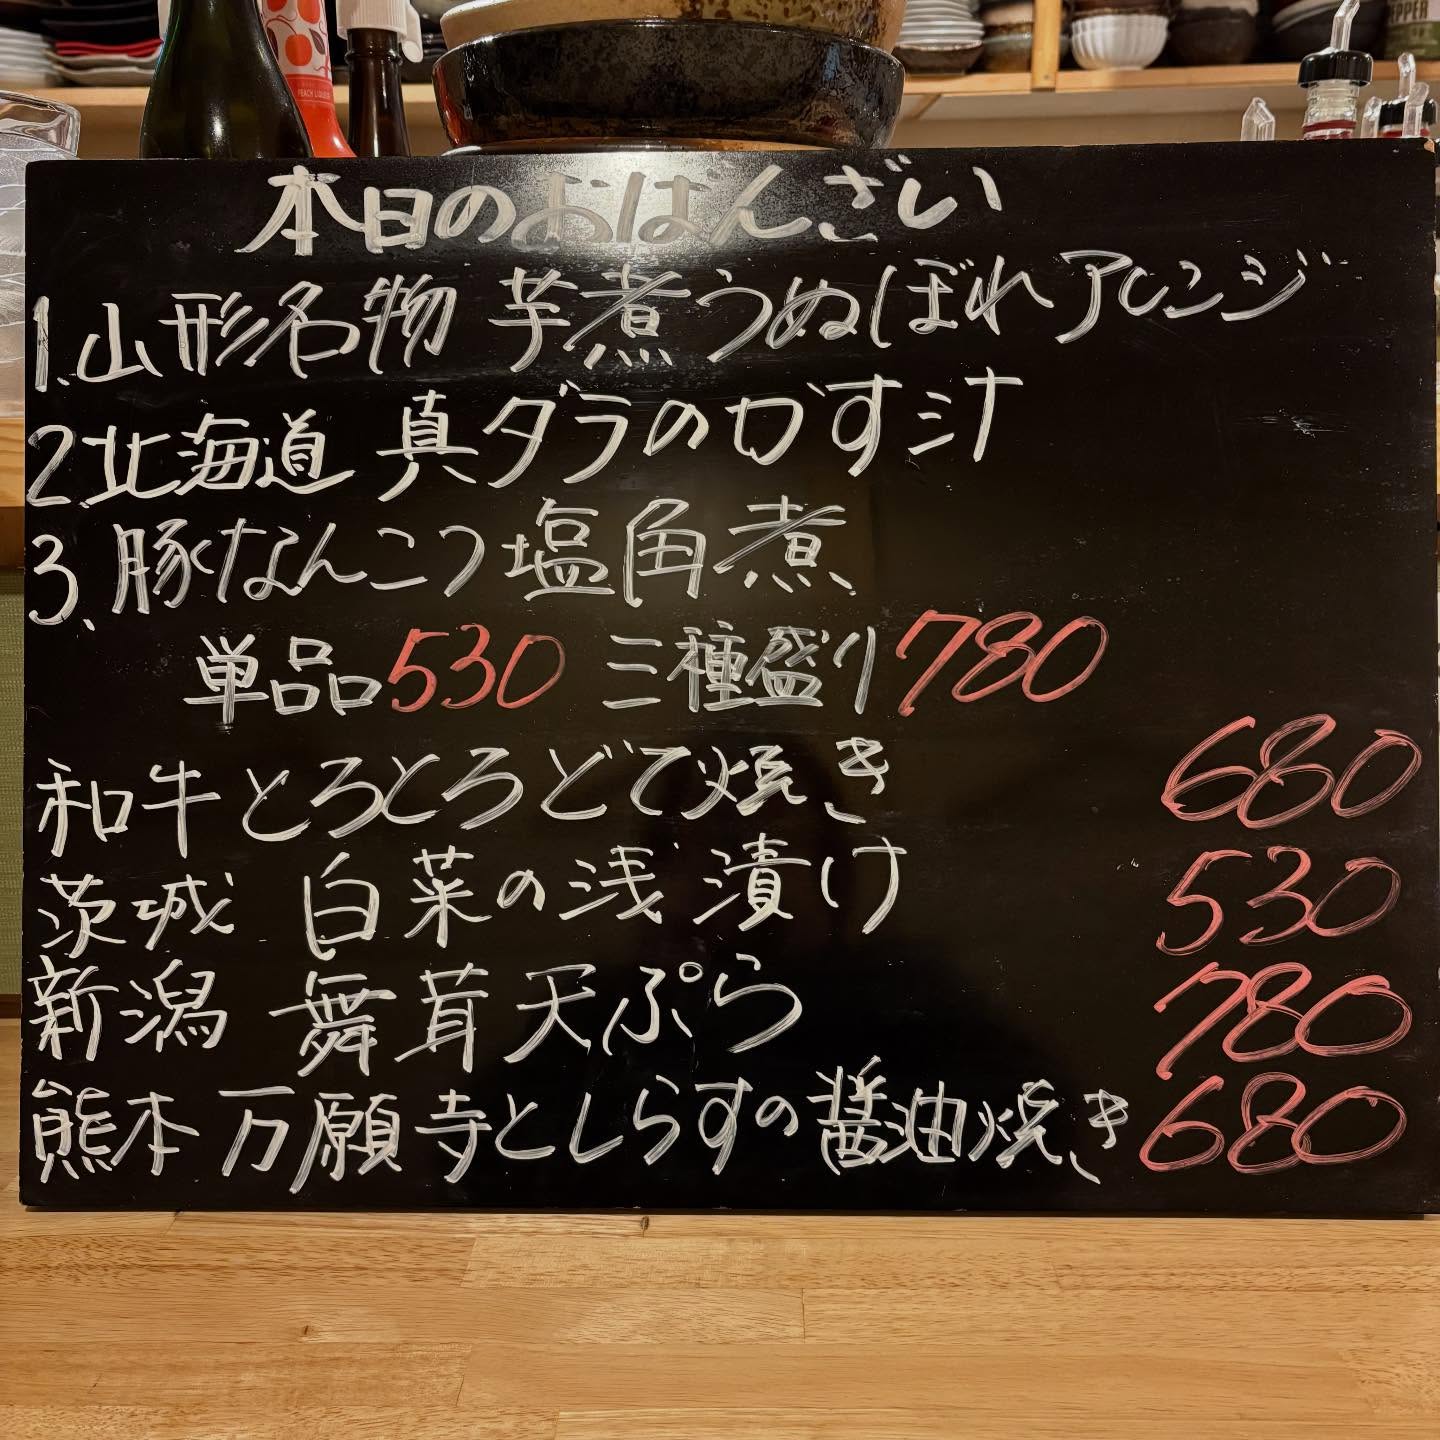 PEACH LIQUEUR
PEPPER
本日のおばんざい
1.山形名物 芋煮うぬぼれアレンジ
2.北海道 真ダラのかす汁
3.豚なんこつ塩角煮
単品530 三種盛り780
和牛とろとろどて焼き 680
茨城 白菜の浅漬け 530
新潟 舞茸天ぷら 780
熊本 万願寺としらすの醤油焼き 680